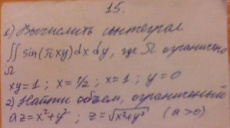 15.
1) Вычислить интеграл
∬ sin(πxy)dxdy, где Ω ограничено
Ω
xy=1; x=½; x=1; y=0
2) Найти объем, ограниченный
az=x²+y²; z=√x²+y² (a>0)